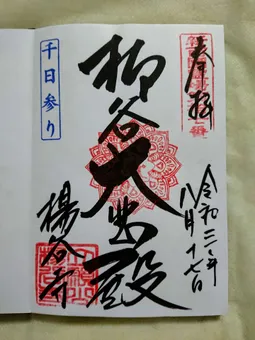 奉拝
令和二年
八月十七日
柳谷大悲殿
楊谷寺
千日参り